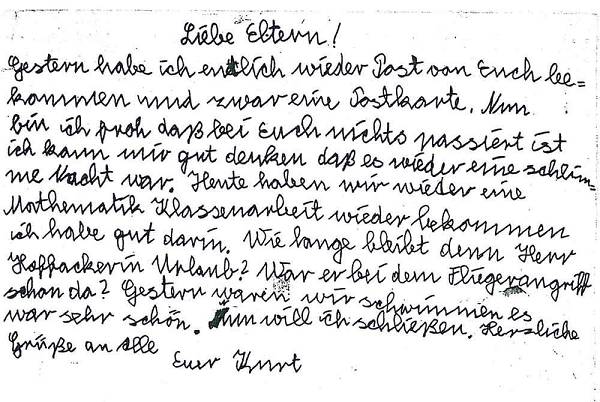 Liebe Eltern!
Gestern habe ich entlich wieder Post von Euch be=
kommen und zwar eine Postkarte. Nun
bin ich froh daß bei Euch nichts passiert ist
ich kann mir gut denken daß es wieder eine schlim=
me Nacht war. Heute haben wir wieder eine
Mathematik Klassenarbeit wieder bekommen
ich habe gut darin. Wie lange bleibt denn Herr
Hoffacker in Urlaub? War er bei dem Fliegerangriff
schon da? Gestern waren wir schwimmen es
war sehr schön. Nun will ich schließen. Herzliche
Grüße an alle
Euer Kurt